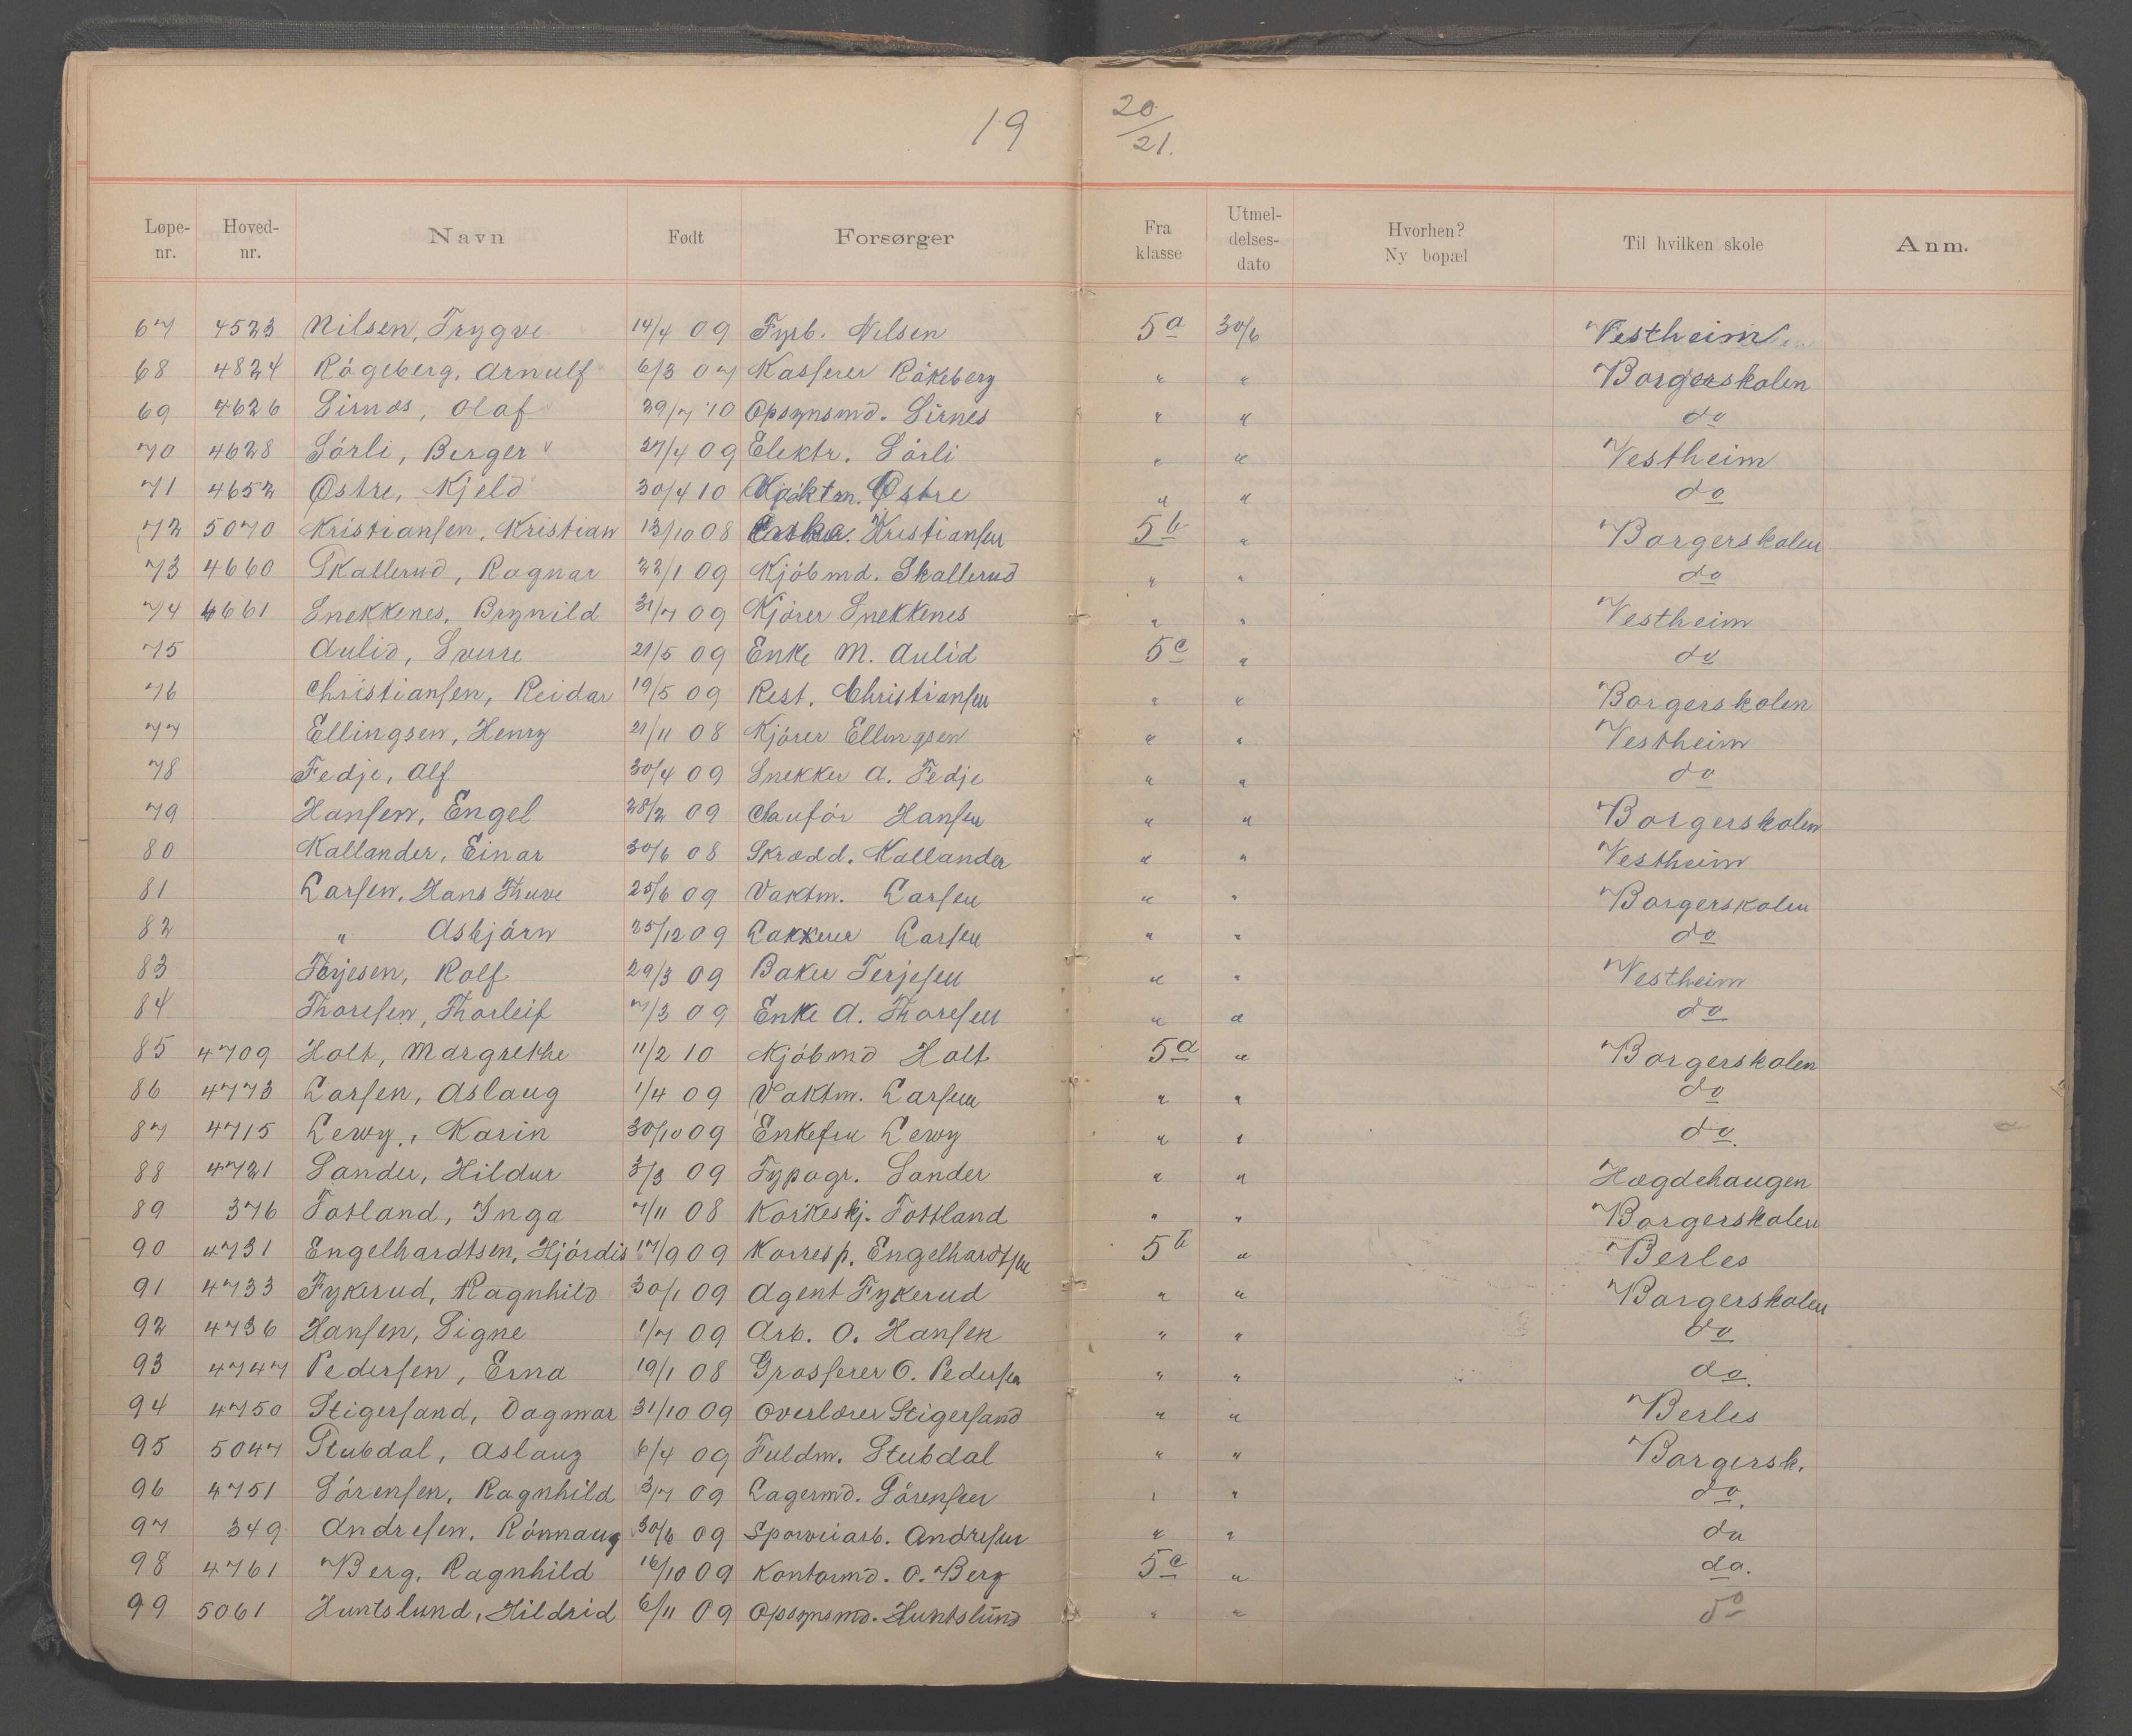 19 20/21.
Løpe-nr. Hoved-nr. Navn Født Forsørger Fra klasse Utmel-delses-dato Hvorhen? Ny bopæl Til hvilken skole Anm.
67 4523 Nilsen, Trygve 14/4 09 Fyrb. Nilsen 5a 30/6 Vestheim
68 4824 Rågeberg, Arnulf 6/3 07 Kasserer Råkeberg " " Borgerskolen
69 4626 Sirnæs, Olaf 29/7 10 Opsynsmd. Sirnes " " do
70 4628 Sörli, Berger 27/4 09 Elektr. Sörli " " Vestheim
71 4652 Østre, Kjeld 30/4 10 Vaktm. Østre " " do
72 5070 Kristiansen, Kristian 13/10 08 Kristiansen 5b " Borgerskolen
73 4660 Skallerud, Ragnar 22/1 09 Kjöbmd. Skallerud " " do
74 4661 Snekkenes, Brynild 31/7 09 Kjörer Snekkenes " " Vestheim
75 Aulid, Sverre 21/5 09 Enke M. Aulid 5c " do
76 Christiansen, Reidar 19/5 09 Rest. Christiansen " " Borgerskolen
77 Ellingsen, Henry 21/11 08 Kjörer Ellingsen " " Vestheim
78 Fedje, Alf 30/4 09 Snekker A. Fedje " " do
79 Hansen, Engel 28/2 09 Chauför Hansen " " Borgerskolen
80 Kallander, Einar 30/6 08 Skrædd. Kallander " " Vestheim
81 Larsen, Hans Thuve 25/6 09 Vaktm. Larsen " " Borgerskolen
82 " Asbjörn 25/12 09 Lakkerer Larsen " " do
83 Terjesen, Rolf 29/3 09 Baker Terjesen " " Vestheim
84 Thoresen, Thorleif 7/3 09 Enke A. Thoresen " " do
85 4709 Holt, Margrethe 11/2 10 Kjöbmd Holt 5a " Borgerskolen
86 4773 Larsen, Aslaug 1/4 09 Vaktm. Larsen " " do
87 4715 Lewy, Karin 30/10 09 Enkefru Lewy " " do.
88 4721 Sander, Hildur 3/3 09 Typogr. Sander " " Hægdehaugen
89 376 Totland, Inga 7/11 08 Korkeskj. Tottland " " Borgerskolen
90 4731 Engelhardtsen, Hjördis 17/9 09 Korresp. Engelhardtsen 5b " Berles
91 4733 Fykerud, Ragnhild 30/1 09 Agent Fykerud " " Borgerskolen
92 4736 Hansen, Signe 1/7 09 Arb. O. Hansen " " do
93 4747 Pedersen, Erna 19/1 08 Grosserer O. Pedersen " " do.
94 4750 Stigersand, Dagmar 31/10 09 Overlærer Stigersand " " Berles
95 5047 Stubdal, Aslaug 6/4 09 Fuldm. Stubdal " " Borgersk.
96 4751 Sörensen, Ragnhild 3/7 09 Lagermd. Sörensen " " do.
97 349 Andresen, Rönnaug 30/6 09 Sporveiarb. Andresen " " do
98 4761 Berg, Ragnhild 16/10 09 Kontormd. O. Berg 5c " do.
99 5061 Huntslund, Hildrid 6/11 09 Opsynsmd. Huntslund " " do